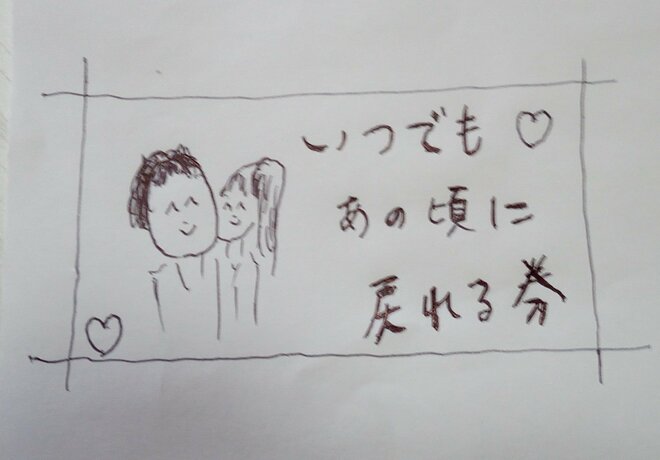 いつでも♡
あの頃に
戻れる券